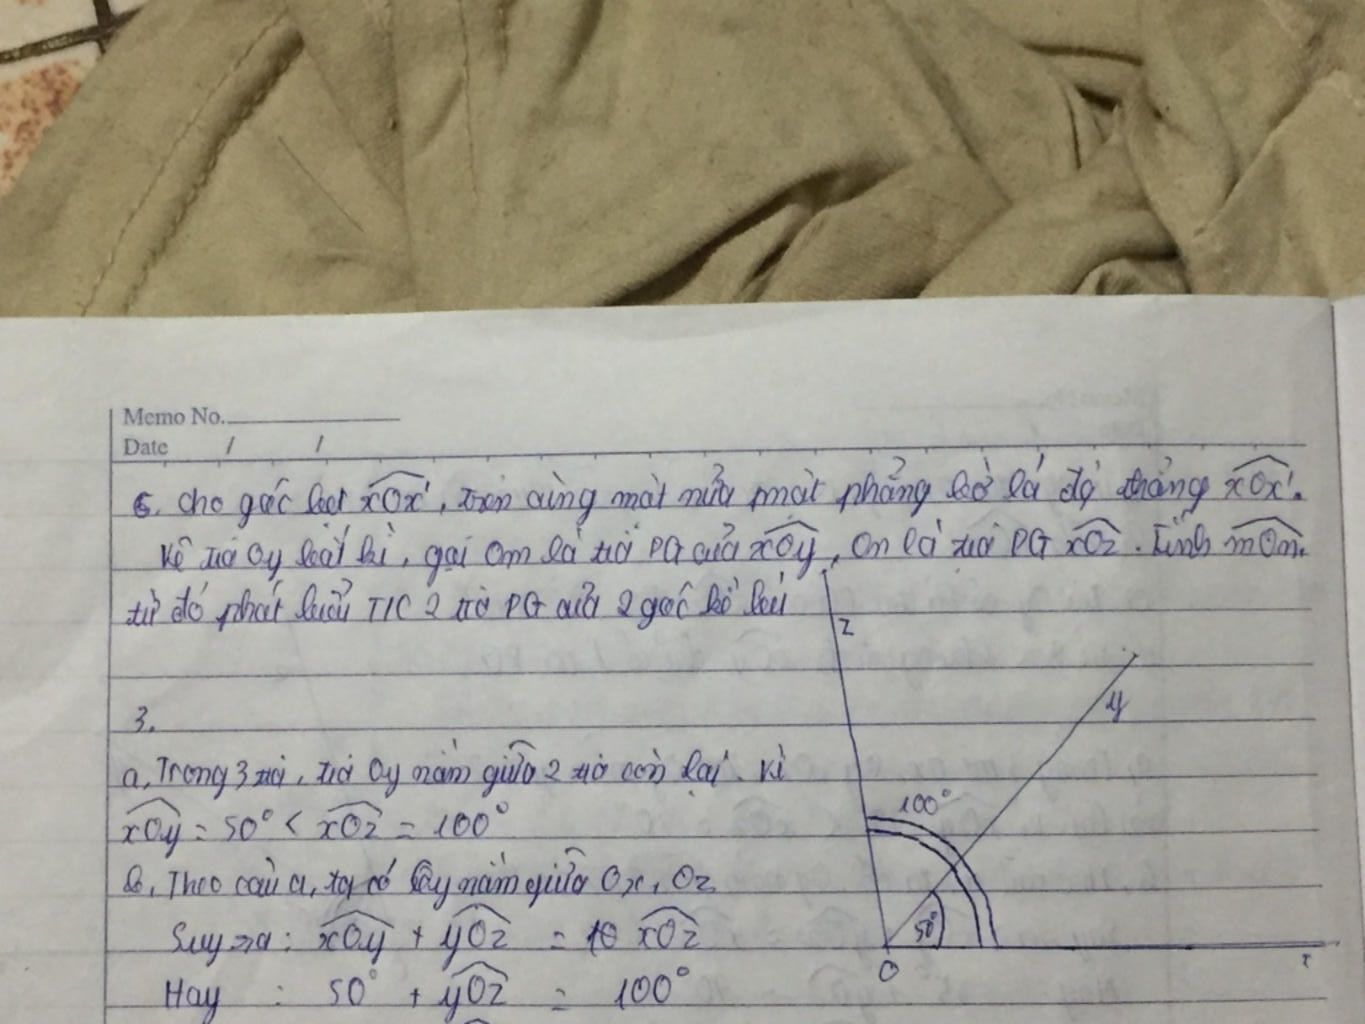 Memo No.
Date / /
6. Cho góc bẹt xOx', trên cùng một nửa mặt phẳng bờ là đg thẳng xOx'.
Kẻ tia Oy bất kì, gọi Om là tia PG của xOy, On là tia PG xOz. Tính mOn,
từ đó phát biểu T/C 2 tia PG của 2 góc kề bù
z
y
3.
a, Trong 3 tia, tia Oy nằm giữa 2 tia còn lại. Vì
xOy = 50° < xOz = 100°
100°
b, Theo câu a, ta có Oy nằm giữa Ox, Oz
Suy ra : xOy + yOz = xOz
50°
x
O
Hay : 50° + yOz = 100°